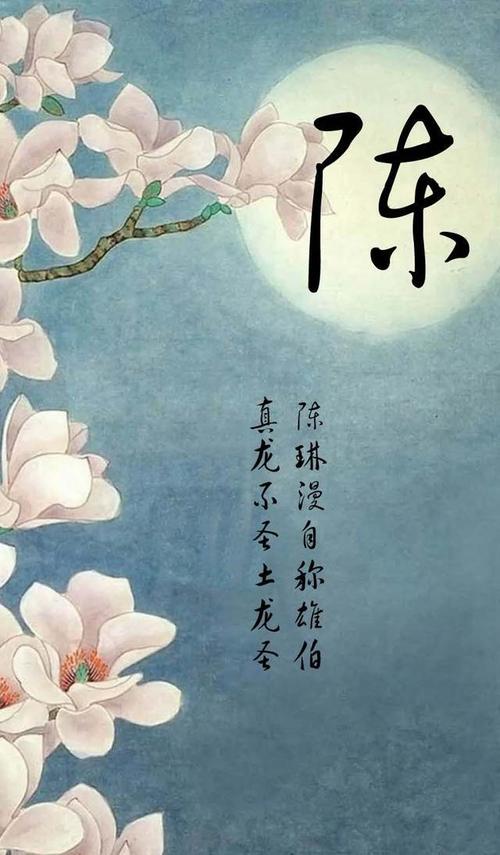 陈
陈琳漫自称雄伯
真龙不圣土龙圣